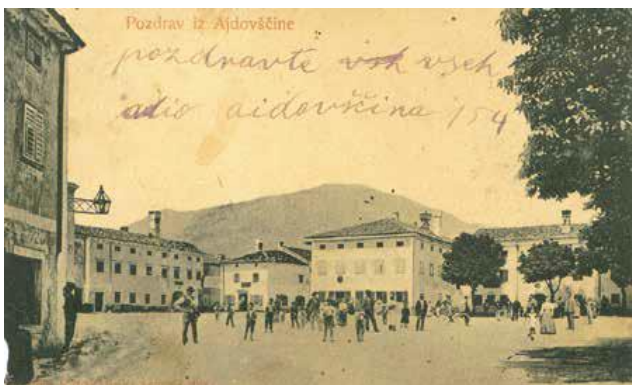 Pozdrav iz Ajdovščine
pozdravte vseh
adio aidovščina 154